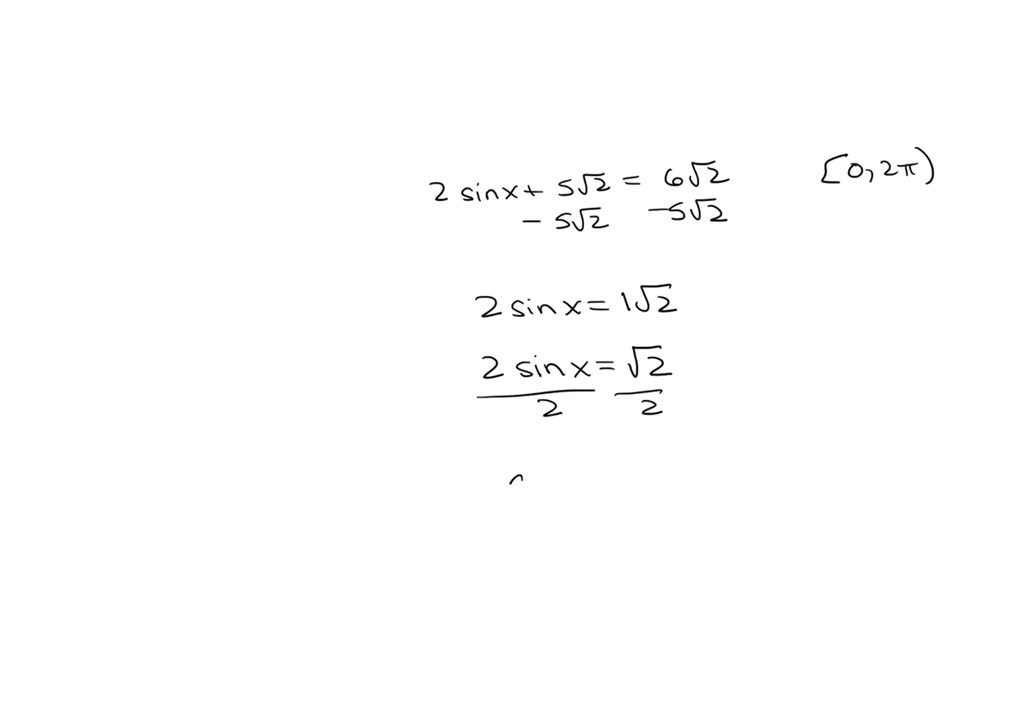 2 sinx + 5√2 = 6√2 [0, 2π)
- 5√2 -5√2
2 sin x = 1√2
2 sin x = √2
2 2